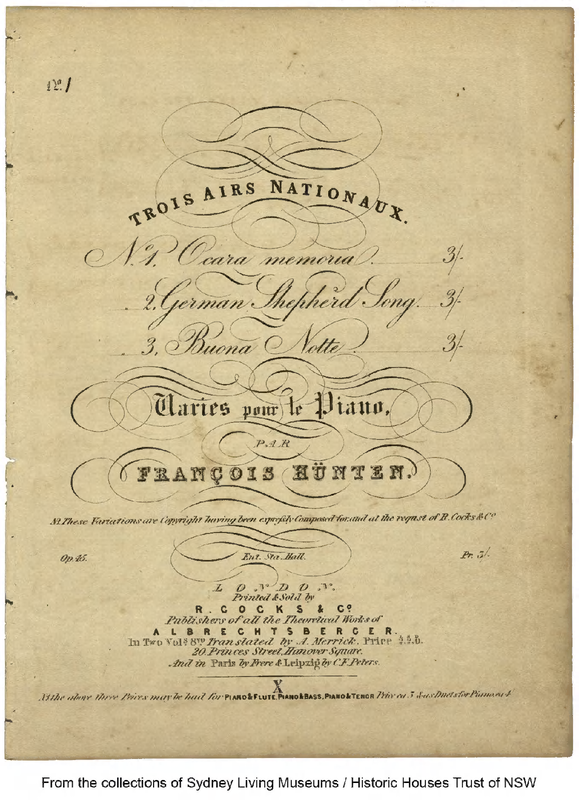 No. 1
TROIS AIRS NATIONAUX.
No. 1. O cara memoria. 3/-
2, German Shepherd Song. 3/-
3, Buona Notte. 3/-
Varies pour le Piano,
PAR
FRANÇOIS HÜNTEN.
N. These Variations are Copyright having been expressly Composed for and at the requst of R. Cocks & Co.
Op. 45. Ent. Sta. Hall. Pr. 3/-
LONDON.
Printed & Sold by
R. COCKS & Co.
Publishers of all the Theoretical Works of
ALBRECHTSBERGER.
In Two Vols. 8vo. Translated by A. Merrick. Price
20, Princes Street, Hanover Square.
And in Paris by Frere & Leipzig by C. F. Peters.
X
the above three Peices may be had for PIANO & FLUTE, PIANO & BASS, PIANO & TENOR Price ea. as Duets for Piano ea. 4
From the collections of Sydney Living Museums / Historic Houses Trust of NSW